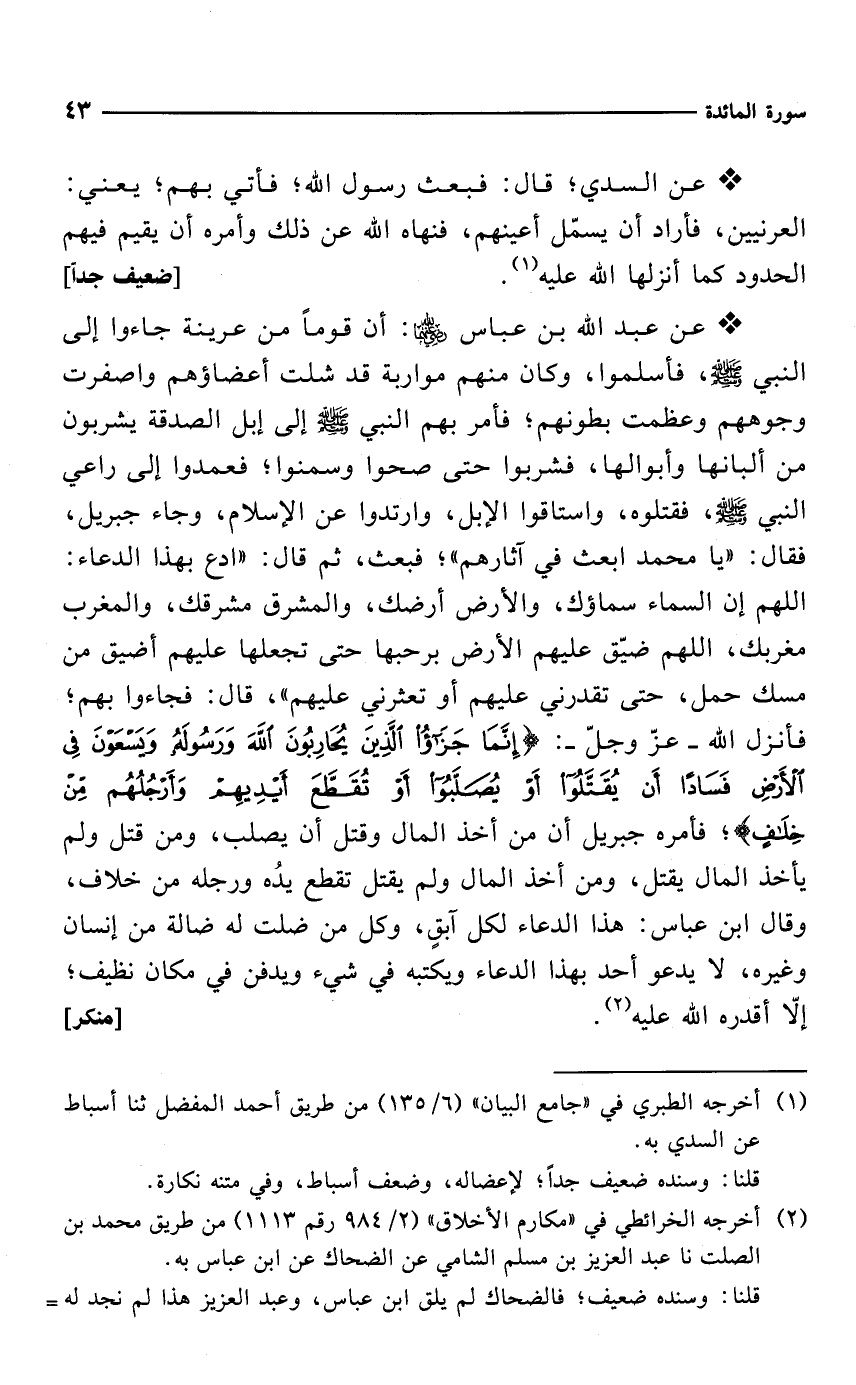 سورة المائدة ٤٣
❖ عن السدي؛ قال: فبعث رسول الله؛ فأتي بهم؛ يعني:
العرنيين، فأراد أن يسمّل أعينهم، فنهاه الله عن ذلك وأمره أن يقيم فيهم
الحدود كما أنزلها الله عليه(١). [ضعيف جداً]
❖ عن عبد الله بن عباس رضي الله عنهما: أن قوماً من عرينة جاءوا إلى
النبي ﷺ، فأسلموا، وكان منهم مواربة قد شلت أعضاؤهم واصفرت
وجوههم وعظمت بطونهم؛ فأمر بهم النبي ﷺ إلى إبل الصدقة يشربون
من ألبانها وأبوالها، فشربوا حتى صحوا وسمنوا؛ فعمدوا إلى راعي
النبي ﷺ، فقتلوه، واستاقوا الإبل، وارتدوا عن الإسلام، وجاء جبريل،
فقال: «يا محمد ابعث في آثارهم»؛ فبعث، ثم قال: «ادع بهذا الدعاء:
اللهم إن السماء سماؤك، والأرض أرضك، والمشرق مشرقك، والمغرب
مغربك، اللهم ضيّق عليهم الأرض برحبها حتى تجعلها عليهم أضيق من
مسك حمل، حتى تقدرني عليهم أو تعثرني عليهم»، قال: فجاءوا بهم؛
فأنزل الله ـ عزّ وجلّ ـ: ﴿إِنَّمَا جَزَٰٓؤُا۟ ٱلَّذِينَ يُحَارِبُونَ ٱللَّهَ وَرَسُولَهُۥ وَيَسْعَوْنَ فِى
ٱلْأَرْضِ فَسَادًا أَن يُقَتَّلُوٓا۟ أَوْ يُصَلَّبُوٓا۟ أَوْ تُقَطَّعَ أَيْدِيهِمْ وَأَرْجُلُهُم مِّنْ
خِلَٰفٍ﴾؛ فأمره جبريل أن من أخذ المال وقتل أن يصلب، ومن قتل ولم
يأخذ المال يقتل، ومن أخذ المال ولم يقتل تقطع يدُه ورجله من خلاف،
وقال ابن عباس: هذا الدعاء لكل آبقٍ، وكل من ضلت له ضالة من إنسان
وغيره، لا يدعو أحد بهذا الدعاء ويكتبه في شيء ويدفن في مكان نظيف؛
إلّا أقدره الله عليه(٢). [منكر]
(١) أخرجه الطبري في «جامع البيان» (٦/ ١٣٥) من طريق أحمد المفضل ثنا أسباط
عن السدي به.
قلنا: وسنده ضعيف جداً؛ لإعضاله، وضعف أسباط، وفي متنه نكارة.
(٢) أخرجه الخرائطي في «مكارم الأخلاق» (٢/ ٩٨٤ رقم ١١١٣) من طريق محمد بن
الصلت نا عبد العزيز بن مسلم الشامي عن الضحاك عن ابن عباس به.
قلنا: وسنده ضعيف؛ فالضحاك لم يلق ابن عباس، وعبد العزيز هذا لم نجد له =